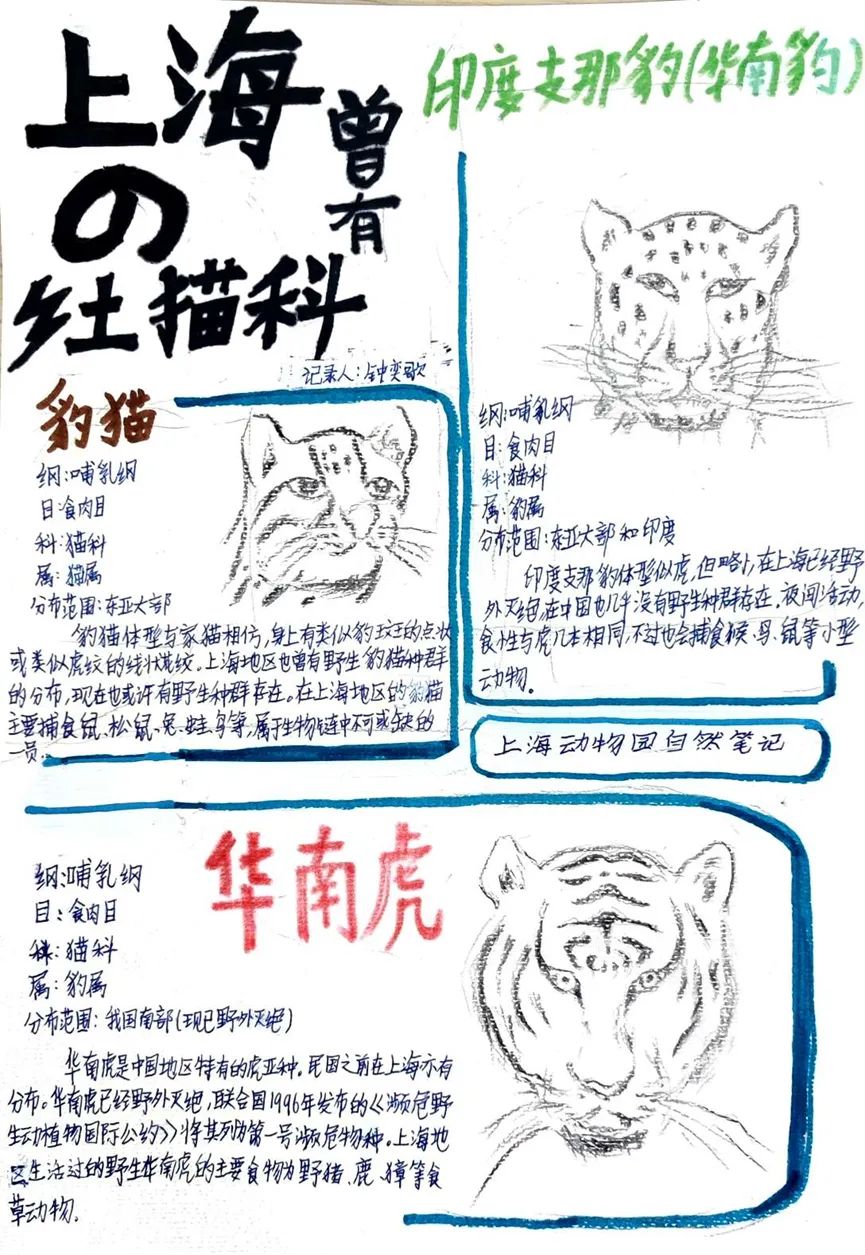 上海
曾有
の
乡土描科
记录人:钟奕歌
豹猫
纲:哺乳纲
目:食肉目
科:猫科
属:猫属
分布范围:东亚大部
豹猫体型与家猫相仿,身上有类似豹斑的点状
或类似虎纹的线状花纹。上海地区也曾有野生豹猫种群
的分布,现在也或许有野生种群存在。在上海地区的豹猫
主要捕食鼠、松鼠、兔、蛙、鸟等,属于生物链中不可或缺的
一员。
印度支那豹(华南豹)
纲:哺乳纲
目:食肉目
科:猫科
属:豹属
分布范围:东亚大部和印度
印度支那豹体型似虎,但略小,在上海已经野
外灭绝,在中国也几乎没有野生种群存在。夜间活动,
食性与虎几本相同,不过也会捕食猴、鸟、鼠等小型
动物。
上海动物园自然笔记
华南虎
纲:哺乳纲
目:食肉目
科:猫科
属:豹属
分布范围:我国南部(现已野外灭绝)
华南虎是中国地区特有的虎亚种。民国之前在上海亦有
分布。华南虎已经野外灭绝,联合国1996年发布的《濒危野
生动植物国际公约》将其列为第一号濒危物种。上海地
区生活过的野生华南虎的主要食物为野猪、鹿、獐等食
草动物。